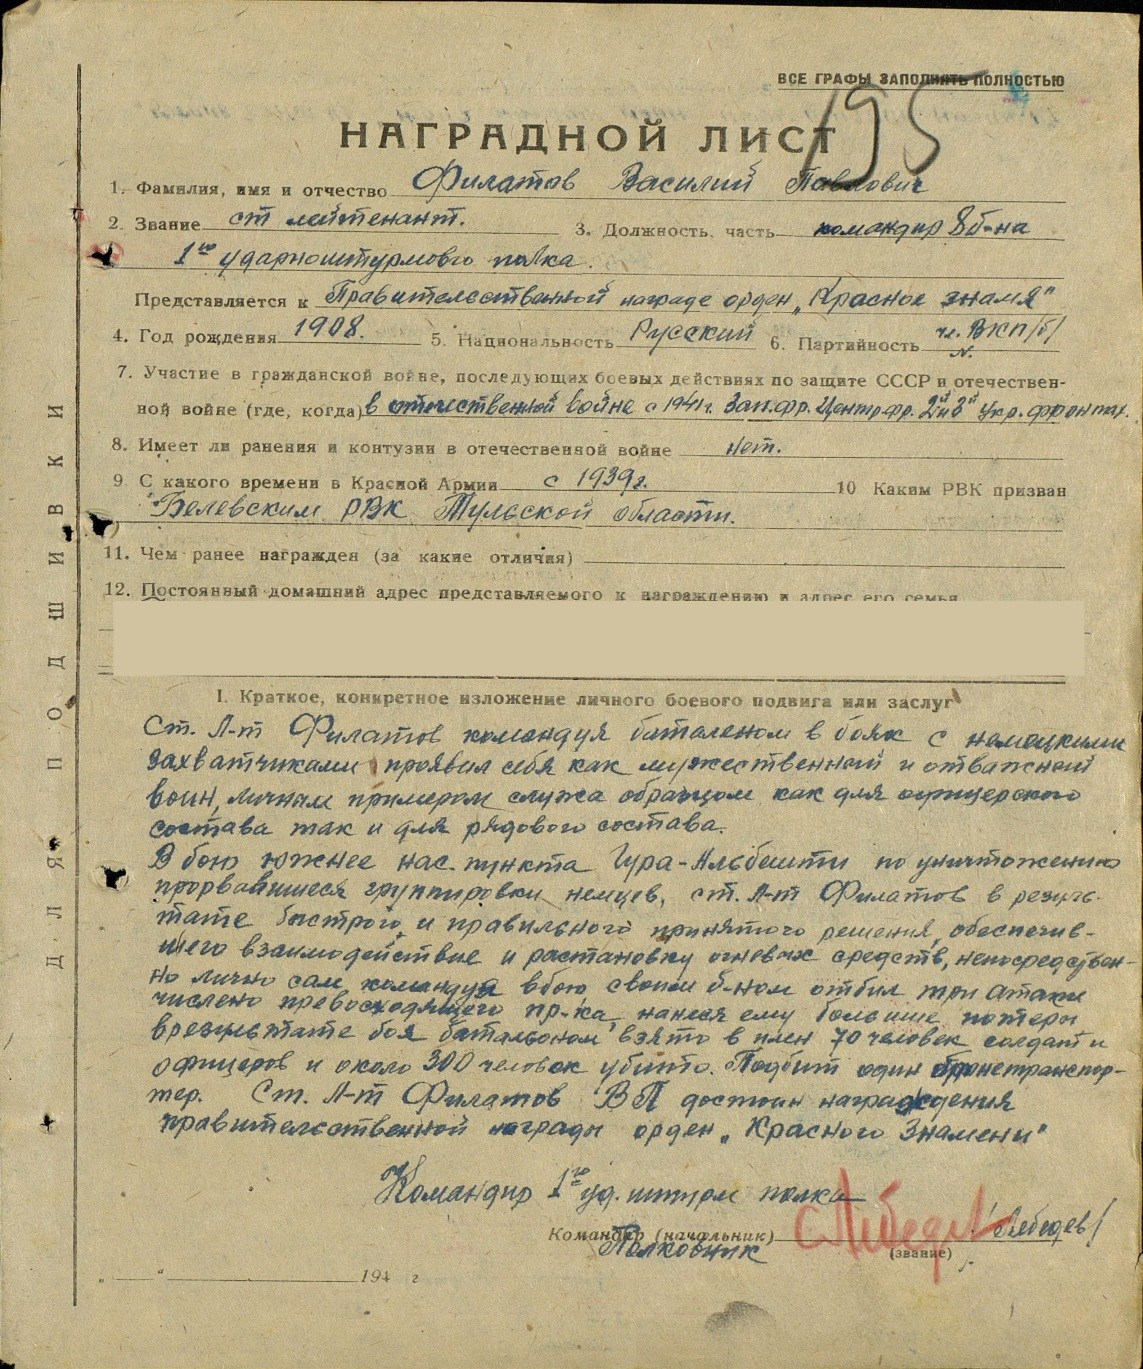 ВСЕ ГРАФЫ ЗАПОЛНЯТЬ ПОЛНОСТЬЮ
195
НАГРАДНОЙ ЛИСТ
1. Фамилия, имя и отчество Филатов Василий Павлович
2. Звание ст лейтенант. 3. Должность, часть командир 8 б-на
1го ударноштурмового полка.
Представляется к Правительственной награде орден „Красное знамя"
4. Год рождения 1908. 5. Национальность Русский 6. Партийность чл. ВКП/б/
7. Участие в гражданской войне, последующих боевых действиях по защите СССР и отечествен-
ной войне (где, когда) в отечественной войне с 1941г. Зап.фр. Центр.фр. 2й и 3й Укр. фронтах.
8. Имеет ли ранения и контузии в отечественной войне нет.
9. С какого времени в Красной Армии с 1939г. 10 Каким РВК призван
Белевским РВК Тульской области.
11. Чем ранее награжден (за какие отличия)
12. Постоянный домашний адрес представляемого к награждению и адрес его семьи
I. Краткое, конкретное изложение личного боевого подвига или заслуг
Ст. Л-т Филатов командуя баталеном в боях с немецкими
захватчиками проявил себя как мужественный и отважный
воин, личным примером служа образцом как для офицерского
состава так и для рядового состава.
В бою южнее нас. пункта Гура-Альбешти по уничтожению
прорвавшиеся группировки немцев, ст. Л-т Филатов в резуль-
тате быстрого и правильного принятого решения, обеспечив-
шего взаимодействие и растановку огневых средств, непосредствен-
но лично сам командуя в бою своим б-ном отбил три атаки
числено превосходящего пр-ка, нанеся ему большие потери
в результате боя батальоном взято в плен 70 человек солдат и
офицеров и около 300 человек убито. Подбит один бронетранспор-
тер. Ст. Л-т Филатов В П достоин награждения
правительственной награды орден „Красного Знамени"
Командир 1го уд. штурм полка
Командир (начальник) С Лебедев /Лебедев/
Полковник (звание)
„ " 194 г
ДЛЯ ПОДШИВКИ